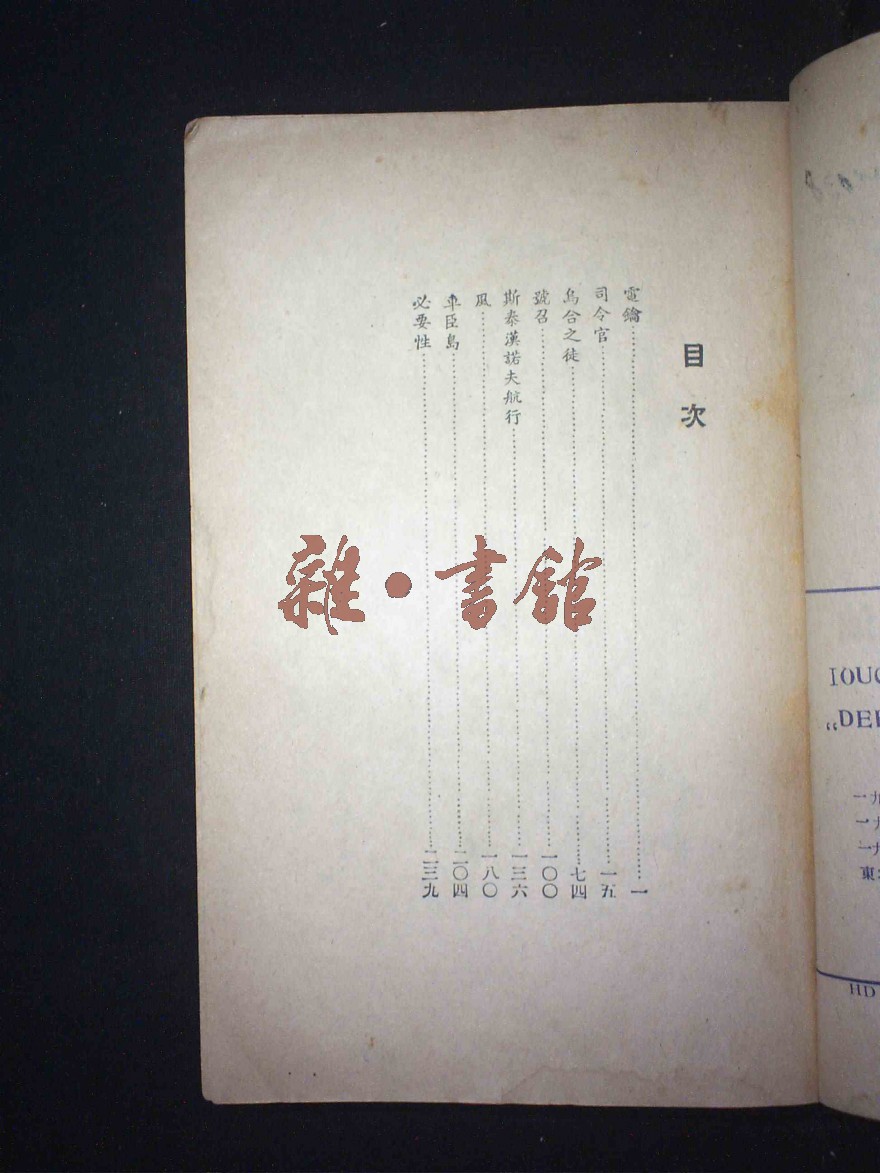 目次
電鑰……一
司令官……一五
烏合之徒……七四
號召……一〇〇
斯泰漢諾夫航行……一三六
風……一八〇
車臣島……二〇四
必要性……二三九
雜·書館
IOUG
„DEL
一九
一九
一九
東北
HD